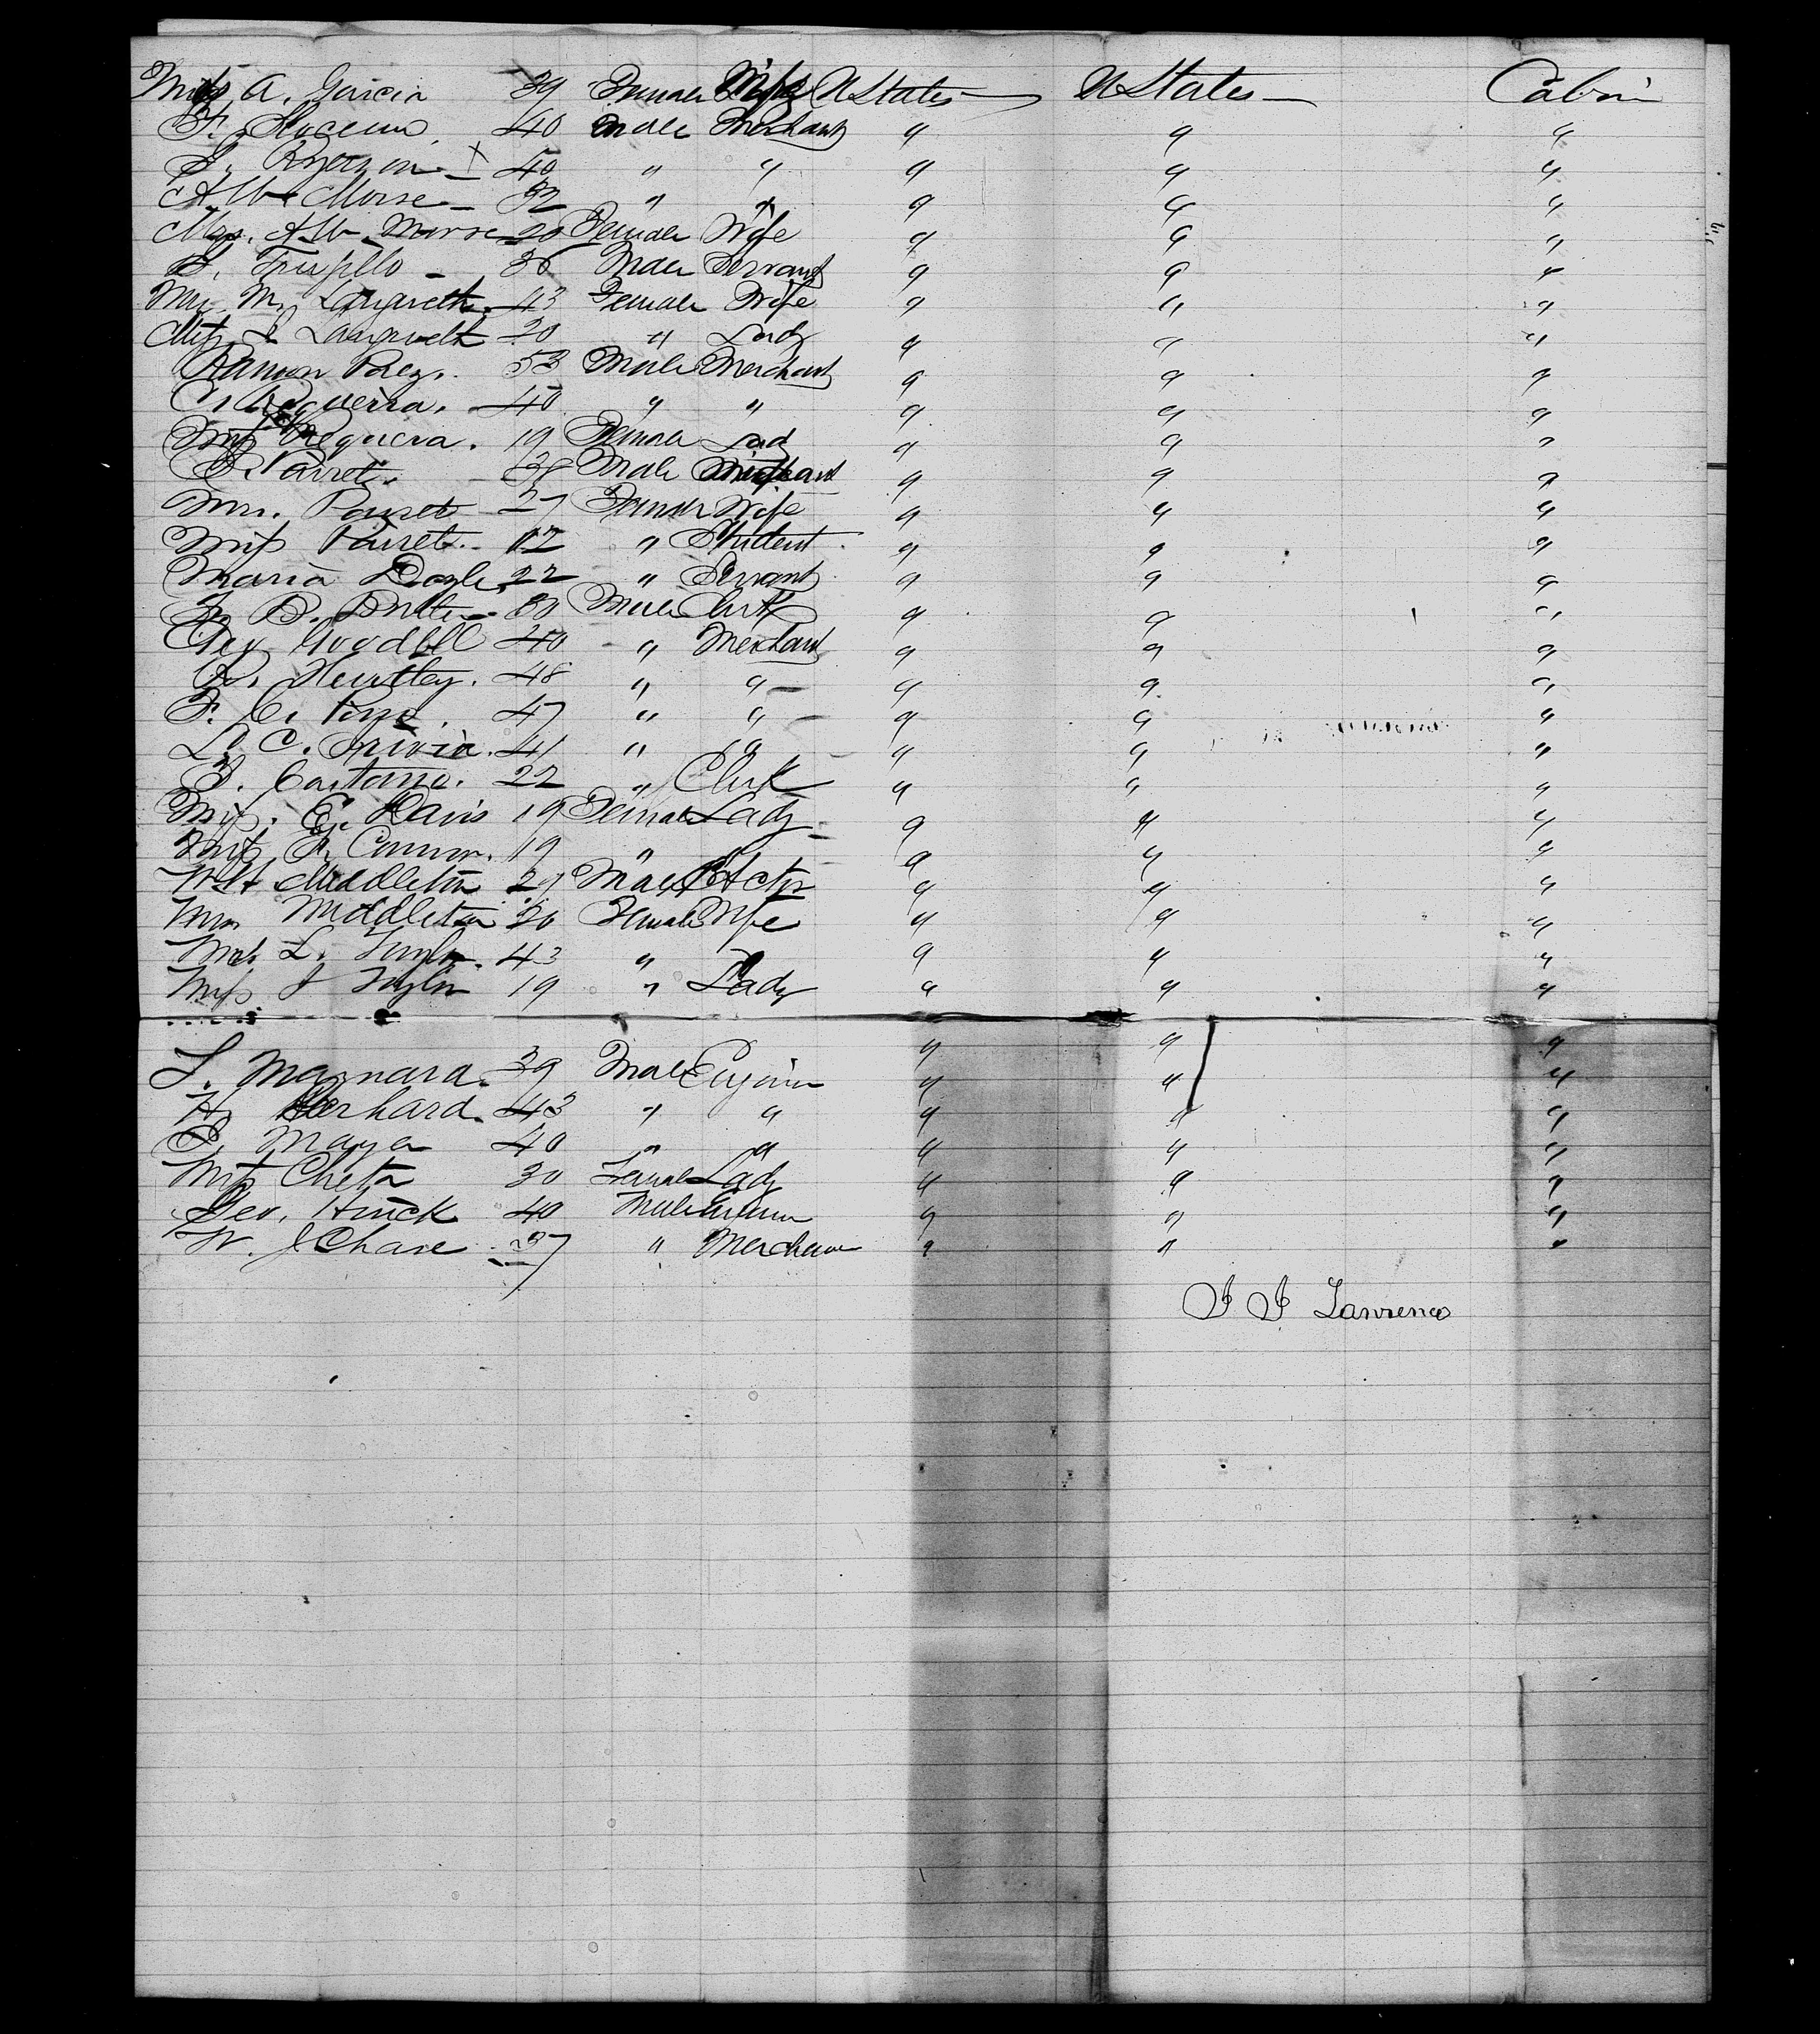 A. Garcia 39 Female Wife U States U States Cabin
F. 40 Male Merchant " " "
S. 40 " " " " "
A W Morse 32 " " " " "
Mrs. A.W. Morse 20 Female Wife " " "
S. Trujillo 36 Male Servant " " "
Mrs. M. 43 Female Wife " " "
Miss 20 " Lady " " "
Ramon Perez. 53 Male Merchant " " "
C. Requerra. 40 " " " " "
Miss Requera. 19 Female Lad " " "
Parret. 38 Male Merchant " " "
Mrs. Parret 27 Female Wife " " "
Miss Parret. 12 " Student " " "
Maria Doyle 22 " Servant " " "
B. Butler 30 Male Clerk " " "
Geo Goodell 40 " Merchant " " "
R. Huntley. 48 " " " " "
F. C. 47 " " " " "
L. C. 41 " " " " "
S. Cartano. 22 " Clerk " " "
Miss. E. Davis 19 Female Lady " " "
Miss F. Connor. 19 " " " " "
Middleton 29 Male Actor " " "
Mrs Middleton 20 Female Wife " " "
Mrs L. Taylor. 43 " " " "
Miss J Taylor 19 " Lady " " "
" " "
L. Maynard. 39 Male Engineer " " "
H. Gerhard. 43 " " " " "
P. Mayer 40 " " " " "
Miss Cheta 30 Female Lady " " "
Geo. Hinck 40 Male " " "
W. J Chase 37 " Merchant " " "
J J Lawrence